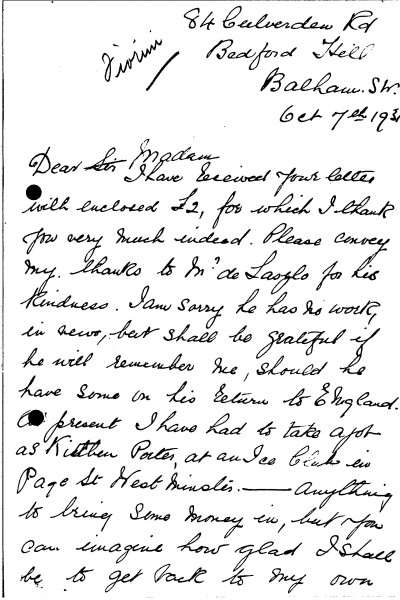 84 Culverden Rd
Bedford Hill
Balham. S.W.
Oct 7th 193
Fiorini
Dear Sir Madam
I have received your letter
with enclosed £2, for which I thank
you very much indeed. Please convey
my thanks to Mr de Laszlo for his
Kindness. I am sorry he has no work,
in view, but shall be grateful if
he will remember me, should he
have some on his return to England.
At present I have had to take a job
as Kitchen Porter, at an Ice Club in
Page St West Minster. — Anything
to bring some money in, but you
can imagine how glad I shall
be to get back to my own